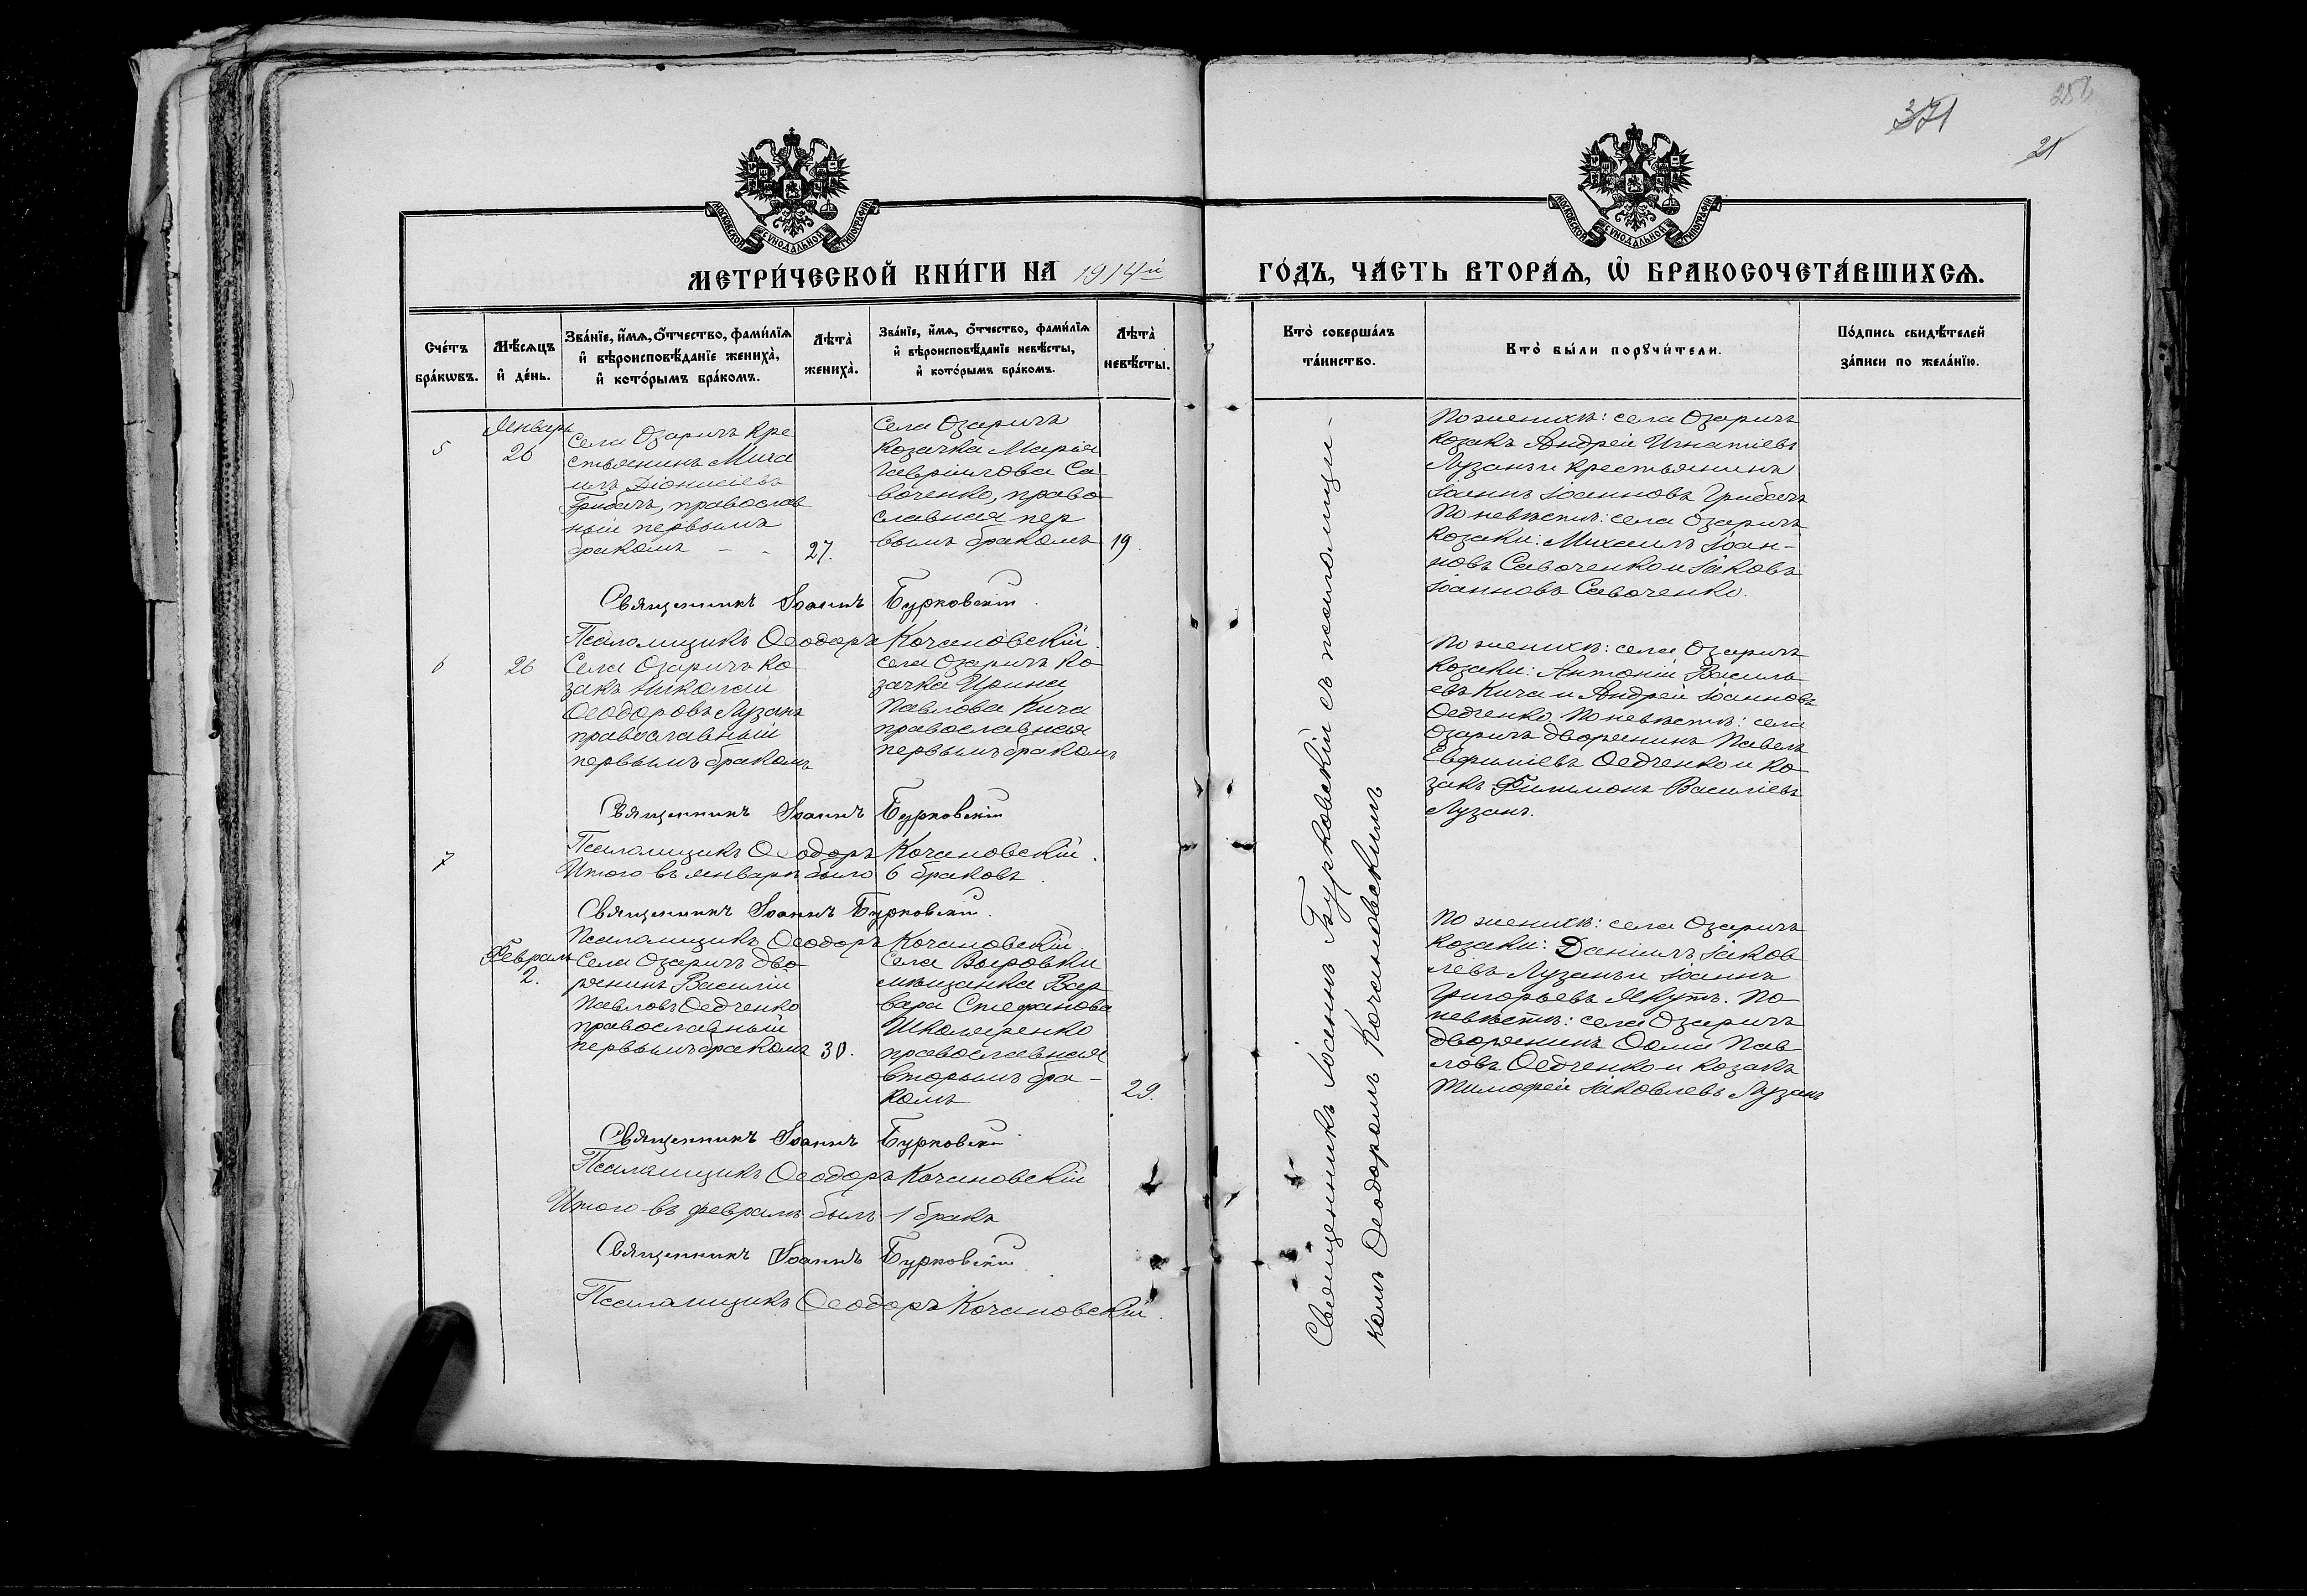 371
21
МОСКОВСКОЙ СѴНОДАЛЬНОЙ ТИПОГРАФІИ
МОСКОВСКОЙ СѴНОДАЛЬНОЙ ТИПОГРАФІИ
МЕТРИ́ЧЕСКОЙ КНИ́ГИ НА 1914й
ГО́ДЪ, ЧА́СТЬ ВТОРА́Ѧ, Ѽ БРАКОСОЧЕТА́ВШИХСѦ.
Сче́тъ
бра́кѡвъ.
Мѣ́сѧцъ
и҆ де́нь.
Зва́нїе, и҆́мѧ, ѻ҆́тчество, фами́лїѧ
и҆ вѣроисповѣ́данїе жениха̀,
и҆ кото́рымъ бра́комъ.
Лѣта̀
жениха̀.
Зва́нїе, и҆́мѧ, ѻ҆́тчество, фами́лїѧ
и҆ вѣроисповѣ́данїе невѣ́сты,
и҆ кото́рымъ бра́комъ.
Лѣта̀
невѣ́сты.
Кто̀ соверша́лъ
та́инство.
Кто̀ бы́ли порꙋчи́тели.
По́дпись свидѣ́телей
за́писи по жела́нїю.
5
Январь
26
Села Озаричъ кре
стьянинъ Миха
илъ Діонисіевъ
Грибачъ, православ
ный первымъ
бракомъ - -
27.
Села Озаричъ
козачка Марія
Гавріилова Са
воченко, право
славная пер
вымъ бракомъ
19.
По женихѣ: села Озаричъ
козакъ Андрей Игнатіевъ
Лузанъ и крестьянинъ
Іоаннъ Іоанновъ Грибачъ
По невѣстѣ: села Озаричъ
козаки: Михаилъ Іоан-
новъ Савоченко и Іаковъ
Іоанновъ Савоченко.
Священникъ Іоаннъ Бурковскій.
Псаломщикъ Ѳеодоръ Кочановскій.
6
26
Села Озаричъ ко
закъ Николай
Ѳеодоровъ Лузанъ
православный
первымъ бракомъ
села Озаричъ ко
зачка Ирина
Павлова Кича
православная
первымъ бракомъ
По женихѣ: села Озаричъ
козаки: Антоній Василь
евъ Кича и Андрей Іоанновъ
Ѳедченко. По невѣстѣ: села
Озаричъ дворянинъ Павелъ
Евфиміевъ Ѳедченко и ко
закъ Филимонъ Василіевъ
Лузанъ.
Священникъ Іоаннъ Бурковскій
Псаломщикъ Ѳеодоръ Кочановскій.
7
Итого въ январѣ было 6 браковъ.
Священникъ Іоаннъ Бурковскій.
Псаломщикъ Ѳеодоръ Кочановскій
Февраль
2.
Села Озаричъ дво
рянинъ Василій
Павловъ Ѳедченко
православный
первымъ бракомъ
30.
Села Выровки
мѣщанка Вар
вара Стефанова
Школяренко
православная
вторымъ бра-
комъ
29.
По женихѣ: села Озаричъ
козаки: Даніилъ Іаков
левъ Лузанъ и Іоаннъ
Григорьевъ Якутъ. По
невѣстѣ: села Озаричъ
дворянинъ Ѳома Пав
ловъ Ѳедченко и козакъ
Тимофей Іаковлевъ Лузанъ
Священникъ Іоаннъ Бурковскій
Псаломщикъ Ѳеодоръ Кочановскій
Итого въ февралѣ былъ 1 бракъ
Священникъ Іоаннъ Бурковскій
Псаломщикъ Ѳеодоръ Кочановскій.
Священникъ Іоаннъ Бурковскій съ псаломщи-
комъ Ѳеодоромъ Кочановскимъ